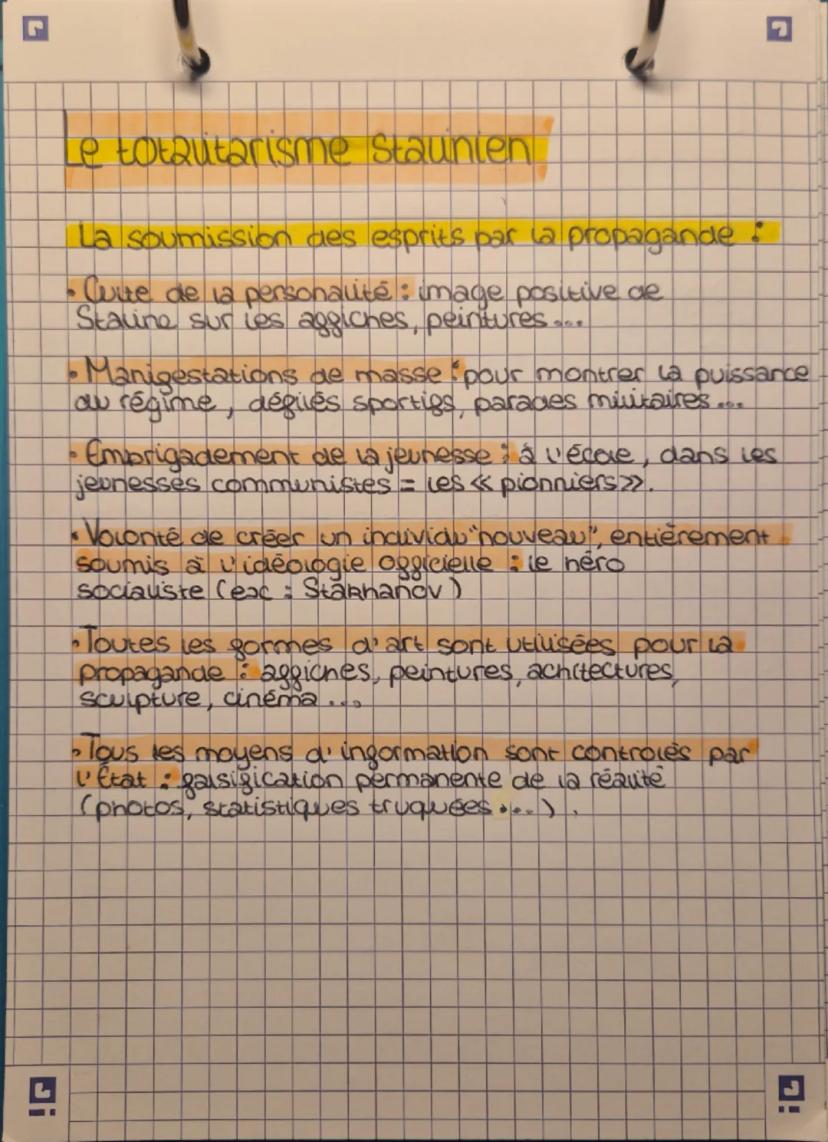 Le totalitarisme stalinien
La soumission des esprits par la propagande :
• Culte de la personalité : image positive de
Staline sur les affiches, peintures...
• Manifestations de masse : pour montrer la puissance
du régime, défilés sportifs, parades militaires...
• Embrigadement de la jeunesse : à l'école, dans les
jeunesses communistes = les « pionniers ».
• Volonté de créer un individu "nouveau", entièrement
soumis à l'idéologie officielle : le héro
socialiste (ex : Stakhanov)
• Toutes les formes d'art sont utilisées pour la
propagande : affiches, peintures, achitectures,
sculpture, cinéma...
• Tous les moyens d'information sont controlés par
l'État : falsification permanente de la réalité
(photos, statistiques truquées....).